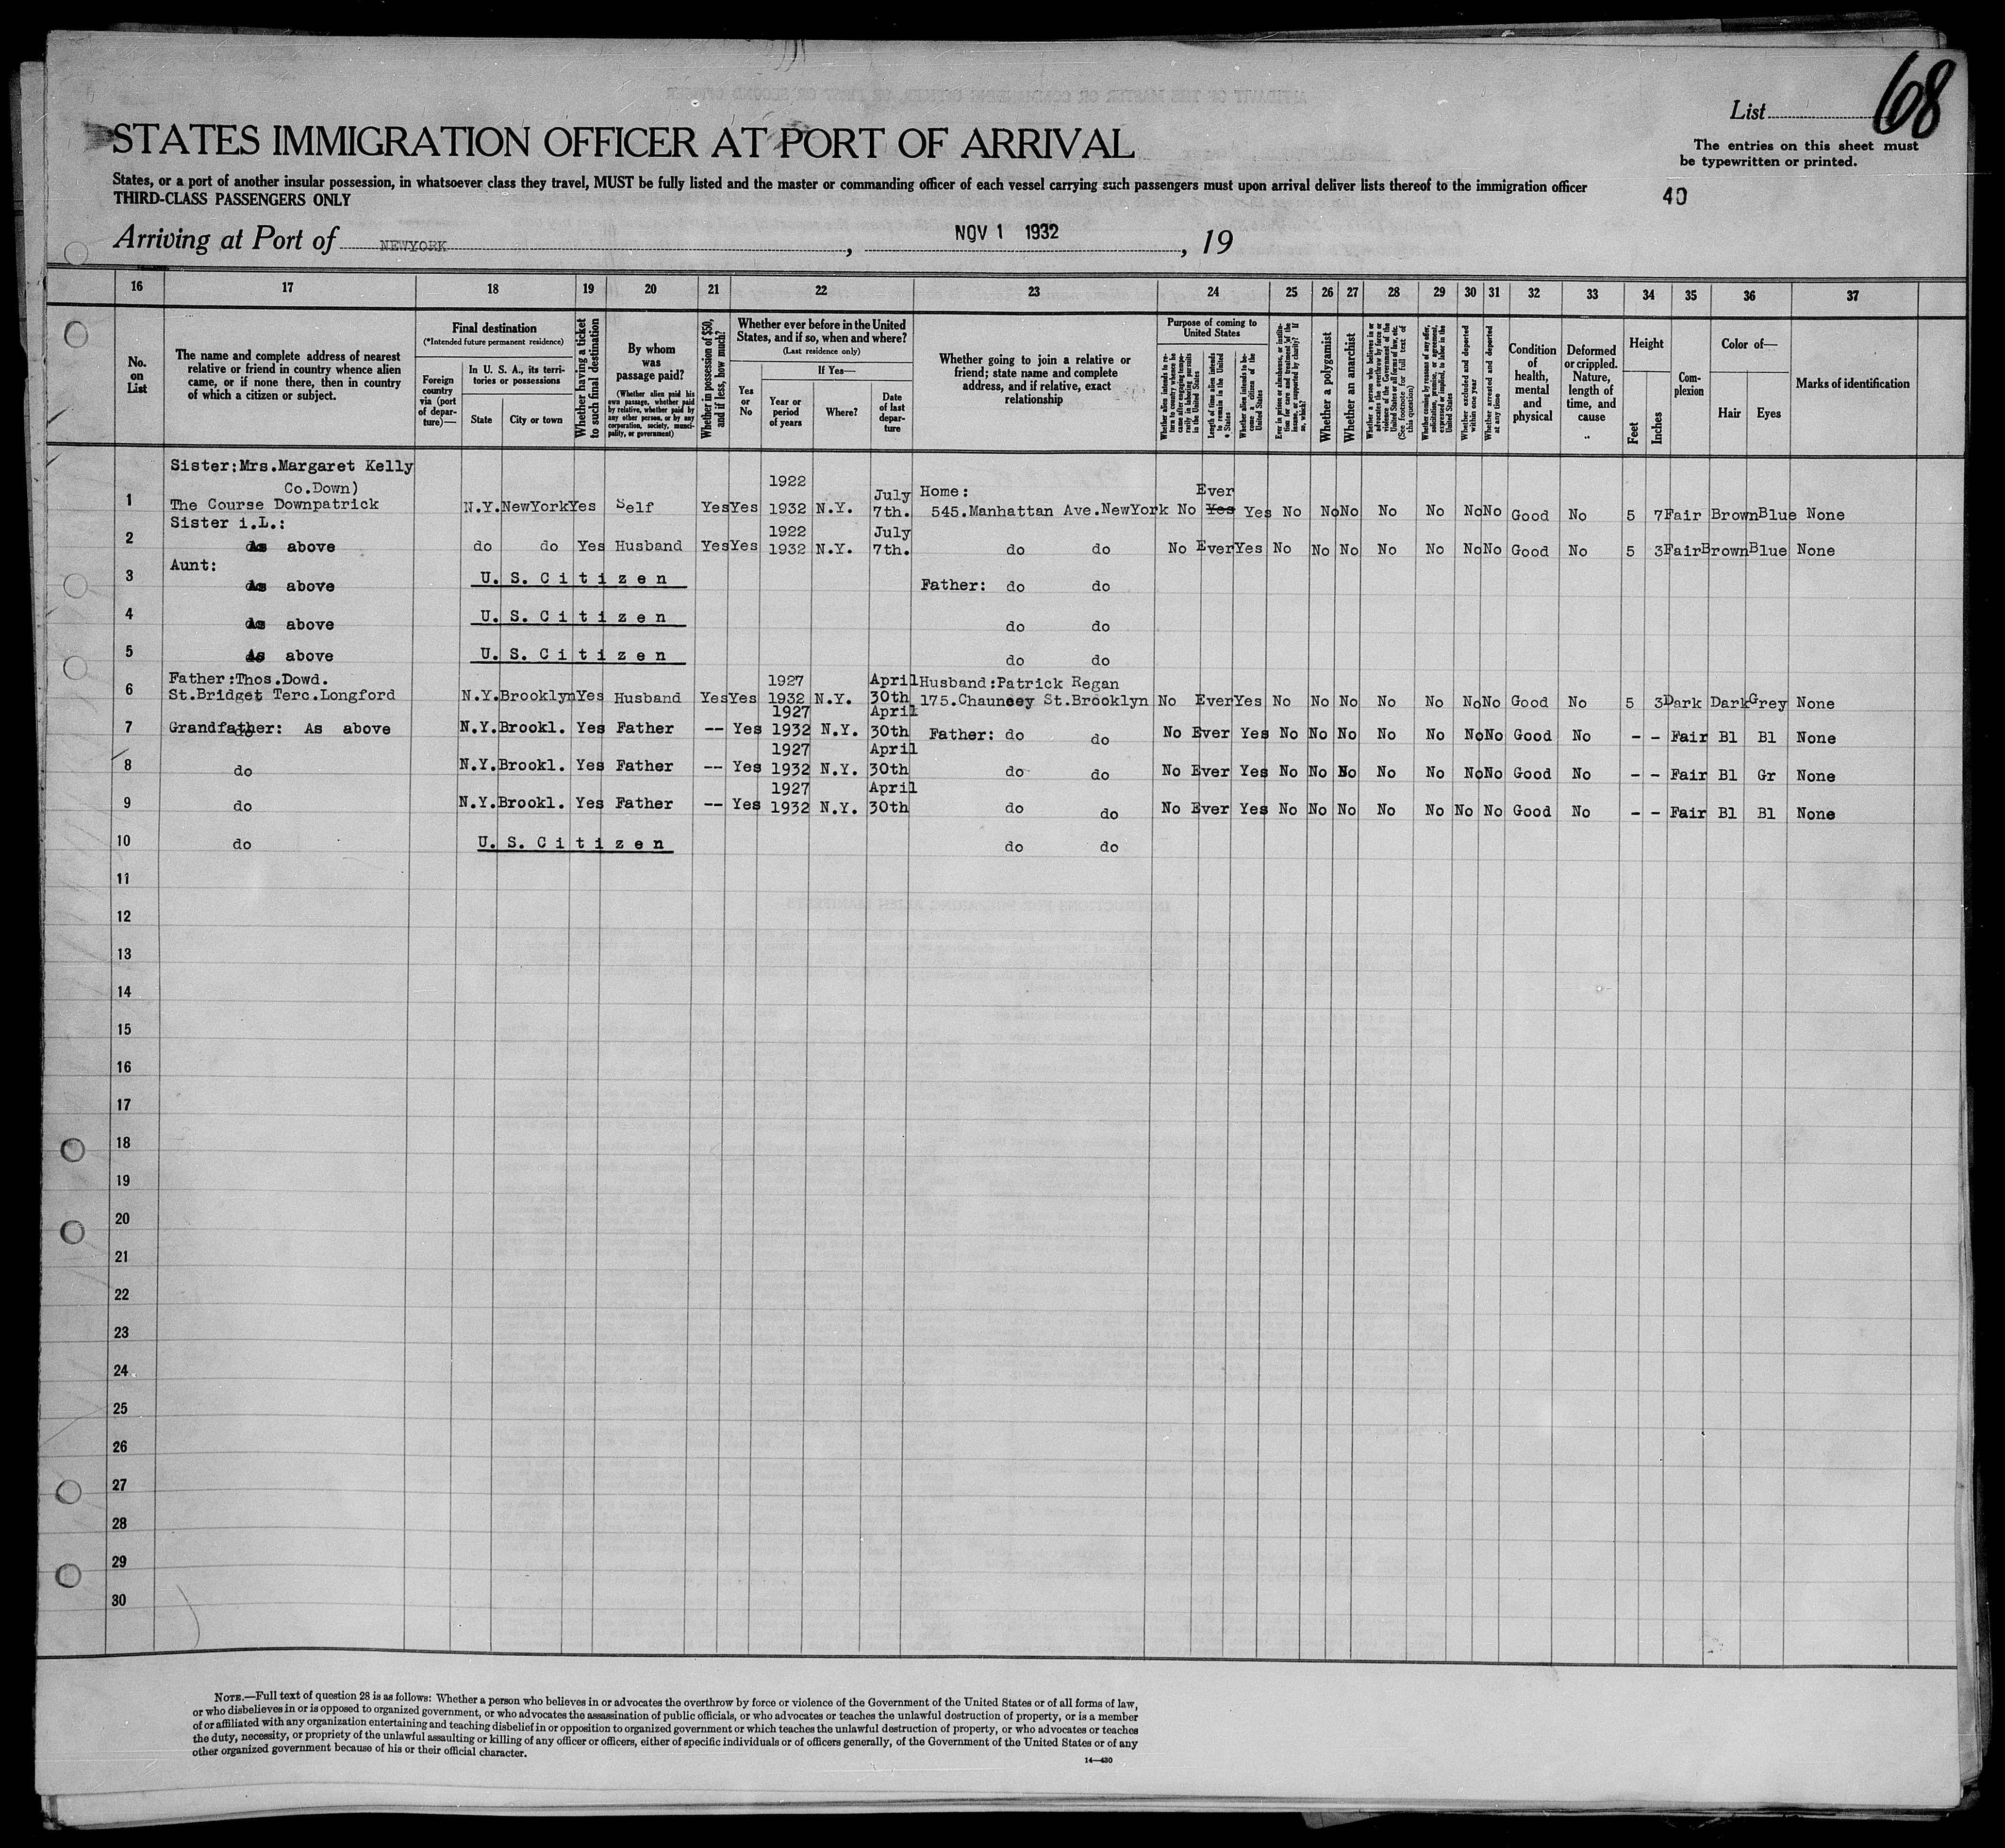 68
List
STATES IMMIGRATION OFFICER AT PORT OF ARRIVAL
The entries on this sheet must
be typewritten or printed.
States, or a port of another insular possession, in whatsoever class they travel, MUST be fully listed and the master or commanding officer of each vessel carrying such passengers must upon arrival deliver lists thereof to the immigration officer
THIRD-CLASS PASSENGERS ONLY
40
Arriving at Port of NEWYORK, NOV 1 1932, 19
16 17 18 19 20 21 22 23 24 25 26 27 28 29 30 31 32 33 34 35 36 37
No. on List
The name and complete address of nearest relative or friend in country whence alien came, or if none there, then in country of which a citizen or subject.
Final destination
(*Intended future permanent residence)
Foreign country via (port of departure)—
In U. S. A., its territories or possessions
State
City or town
Whether having a ticket to such final destination
By whom was passage paid?
(Whether alien paid his own passage, whether paid by relative, whether paid by any other person, or by any corporation, society, municipality, or government)
Whether in possession of $50, and if less, how much?
Whether ever before in the United States, and if so, when and where?
(Last residence only)
Yes or No
If Yes—
Year or period of years
Where?
Date of last departure
Whether going to join a relative or friend; state name and complete address, and if relative, exact relationship
Purpose of coming to United States
Whether alien intends to return to country whence he came after engaging temporarily in laboring pursuits in the United States
Length of time alien intends to remain in the United States
Whether alien intends to become a citizen of the United States
Ever in prison or almshouse, or institution for care and treatment of the insane, or supported by charity? If so, which?
Whether a polygamist
Whether an anarchist
Whether a person who believes in or advocates the overthrow by force or violence of the Government of the United States or all forms of law, etc. (See footnote for full text of this question)
Whether coming by reason of any offer, solicitation, promise, or agreement, expressed or implied, to labor in the United States
Whether excluded and deported within one year
Whether arrested and deported at any time
Condition of health, mental and physical
Deformed or crippled. Nature, length of time, and cause
Height
Feet
Inches
Complexion
Color of—
Hair
Eyes
Marks of identification
Sister:Mrs.Margaret Kelly
Co.Down)
1 The Course Downpatrick N.Y. NewYork Yes Self Yes Yes 1922 1932 N.Y. July 7th. Home: 545.Manhattan Ave.NewYork No Ever Yes Yes No No No No No No No Good No 5 7 Fair Brown Blue None
Sister i.L.:
2 As above do do Yes Husband Yes Yes 1922 1932 N.Y. July 7th. do do No Ever Yes No No No No No No No Good No 5 3 Fair Brown Blue None
Aunt:
3 As above U. S. Citizen Father: do do
4 As above U. S. Citizen do do
5 As above U. S. Citizen do do
Father:Thos.Dowd.
6 St.Bridget Terc.Longford N.Y. Brooklyn Yes Husband Yes Yes 1927 1932 N.Y. April 30th Husband:Patrick Regan 175.Chauncey St.Brooklyn No Ever Yes No No No No No No No Good No 5 3 Dark Dark Grey None
7 Grandfather: As above N.Y. Brookl. Yes Father -- Yes 1927 1932 N.Y. April 30th Father: do do No Ever Yes No No No No No No No Good No - - Fair Bl Bl None
8 do N.Y. Brookl. Yes Father -- Yes 1927 1932 N.Y. April 30th do do No Ever Yes No No No No No No No Good No - - Fair Bl Gr None
9 do N.Y. Brookl. Yes Father -- Yes 1927 1932 N.Y. April 30th do do No Ever Yes No No No No No No No Good No - - Fair Bl Bl None
10 do U. S. Citizen do do
11
12
13
14
15
16
17
18
19
20
21
22
23
24
25
26
27
28
29
30
NOTE.—Full text of question 28 is as follows: Whether a person who believes in or advocates the overthrow by force or violence of the Government of the United States or of all forms of law,
or who disbelieves in or is opposed to organized government, or who advocates the assassination of public officials, or who advocates or teaches the unlawful destruction of property, or is a member
of or affiliated with any organization entertaining and teaching disbelief in or opposition to organized government or which teaches the unlawful destruction of property, or who advocates or teaches
the duty, necessity, or propriety of the unlawful assaulting or killing of any officer or officers, either of specific individuals or of officers generally, of the Government of the United States or of any
other organized government because of his or their official character.
14—430